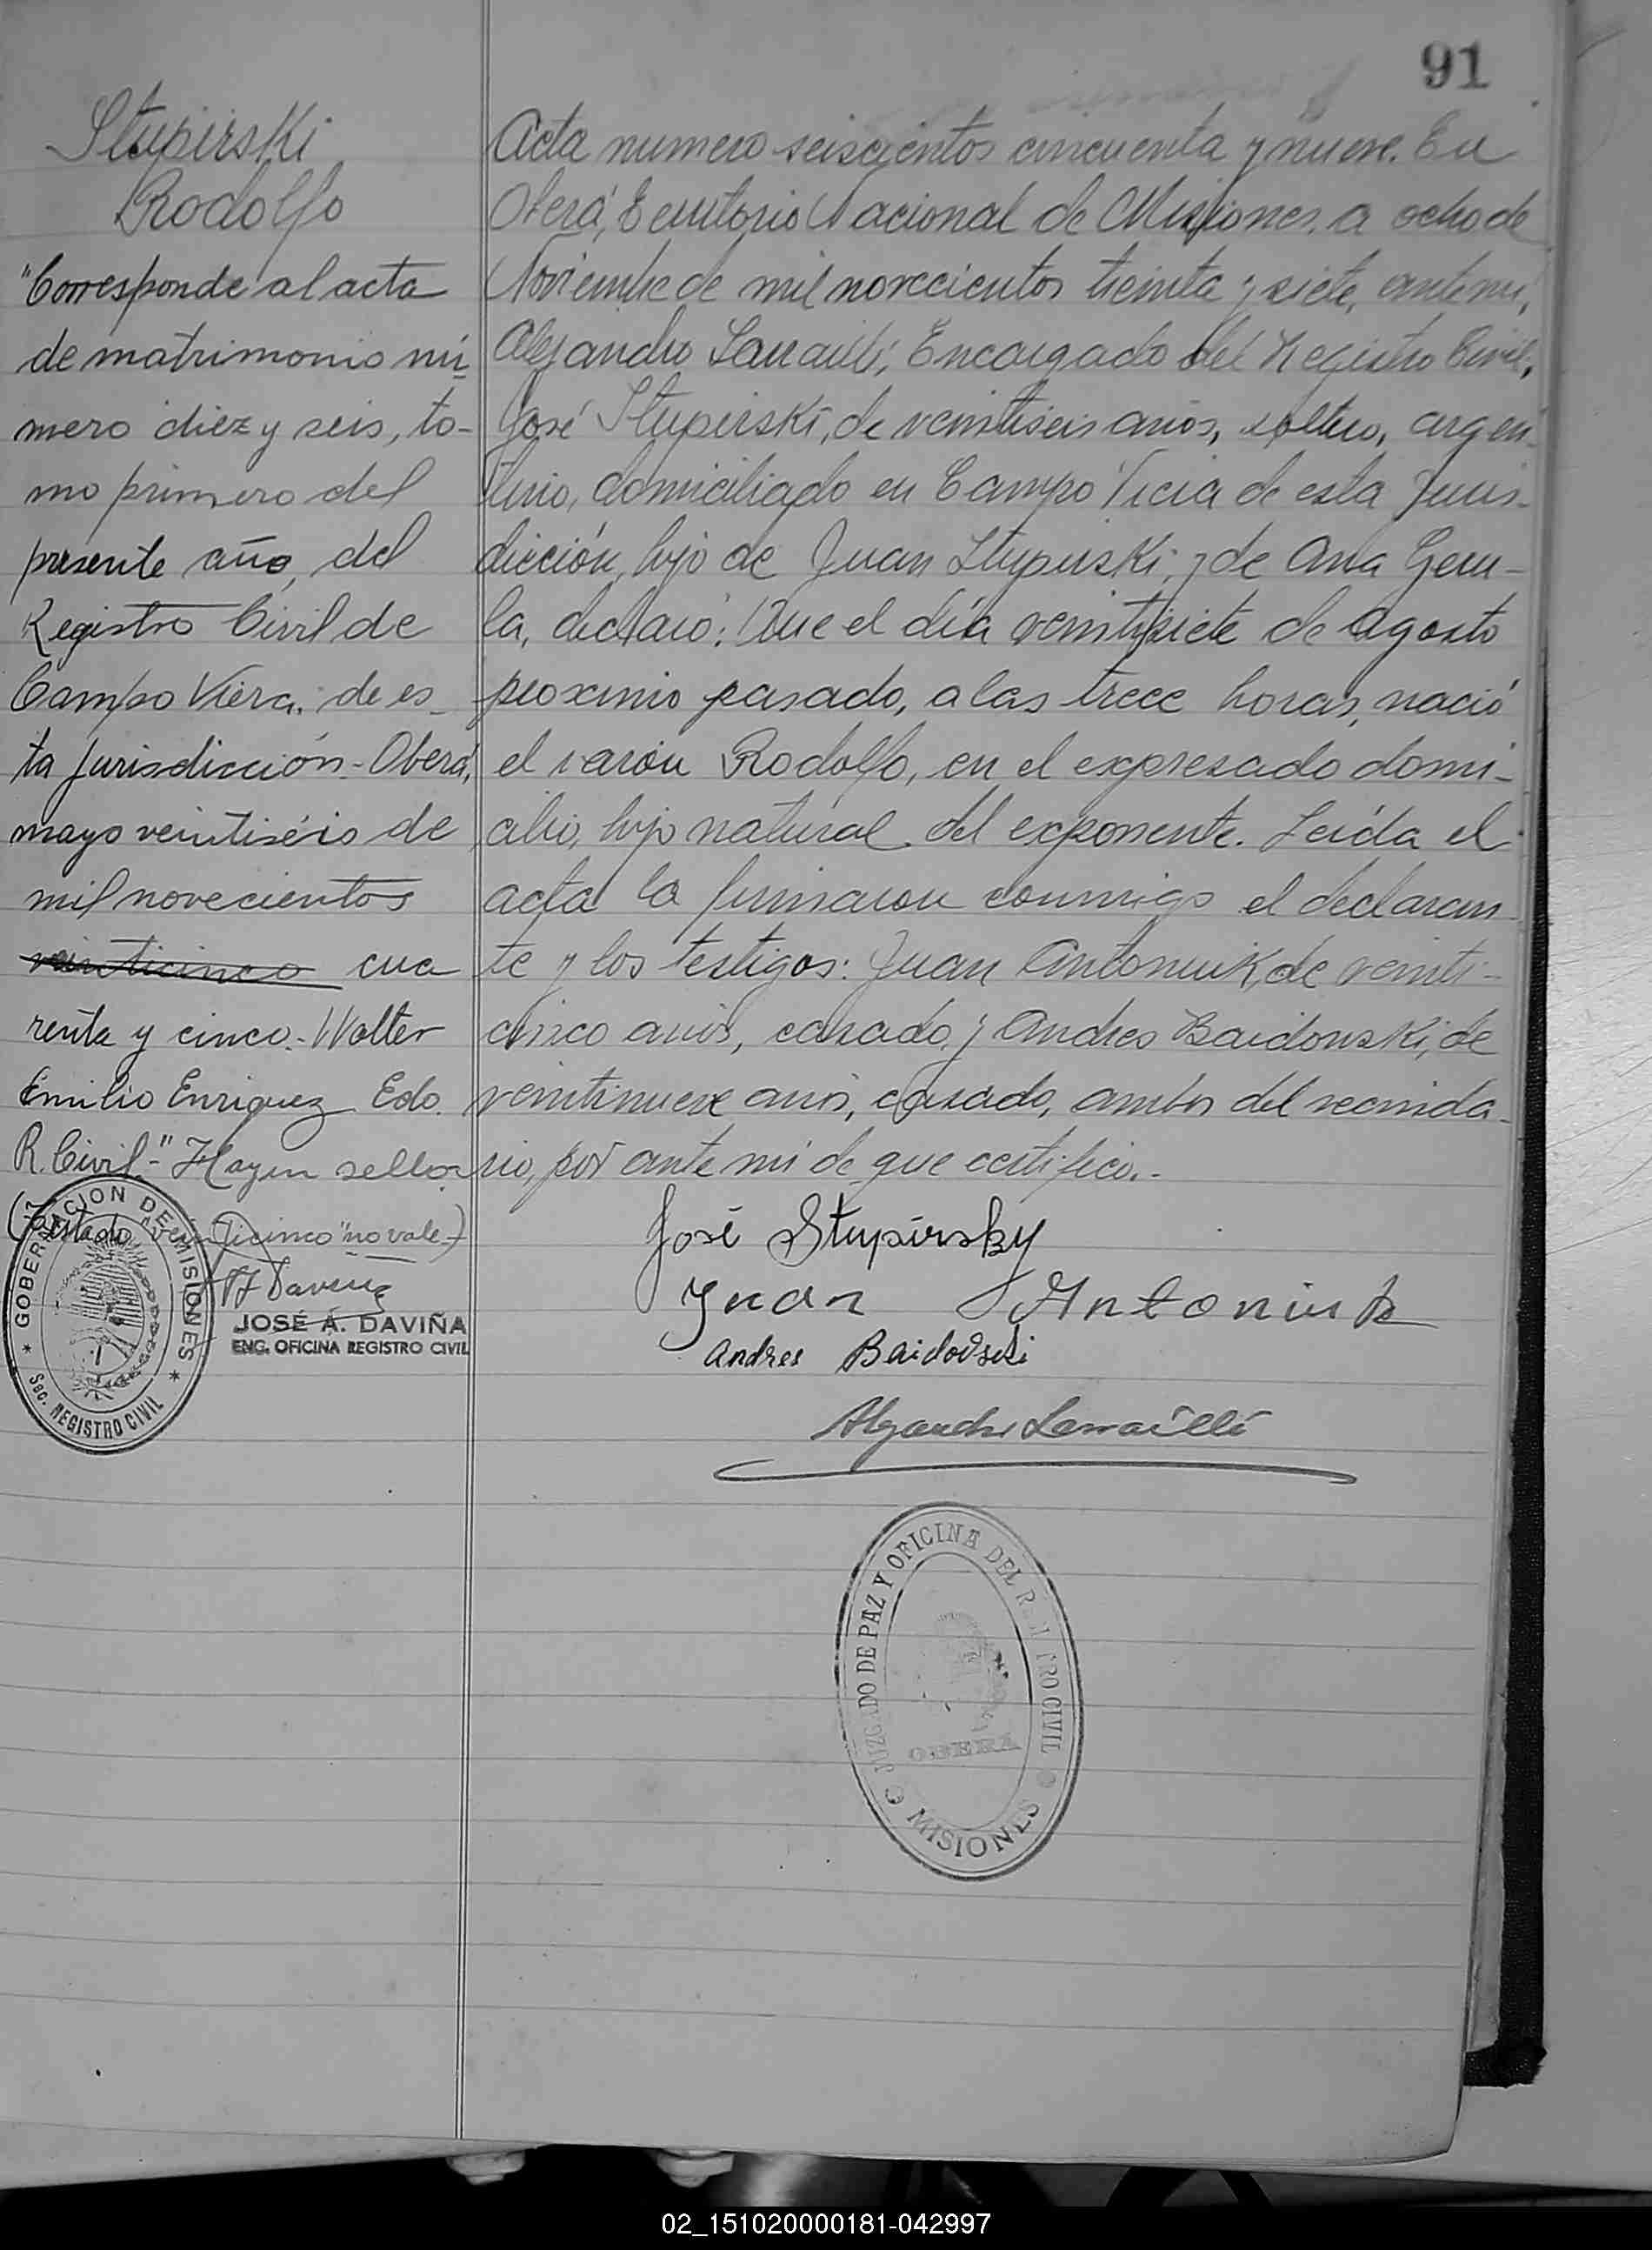 91
Stupirski
Rodolfo
"Corresponde al acta
de matrimonio nú
mero diez y seis, to-
mo primero del
presente año, del
Registro Civil de
Campo Viera, de es-
ta Jurisdicción - Oberá,
mayo veintiséis de
mil novecientos
veinticinco cua
renta y cinco.- Walter
Emilio Enriquez Edo.
R. Civil-" Hay un sello
(Testado "veinticinco" no vale-)
JOSÉ A. DAVIÑA
ENG. OFICINA REGISTRO CIVIL
GOBERNACION DE MISIONES
Sec. REGISTRO CIVIL
Acta numero seiscientos cincuenta y nueve. En
Oberá, Territorio Nacional de Misiones, a ocho de
Noviembre de mil novecientos treinta y siete, ante mi,
Alejandro Larraillé, Encargado del Registro Civil,
José Stupirski, de veintiseis años, soltero, argen-
tino, domiciliado en Campo Viera de esta Juris-
dicción, hijo de Juan Stupirski, y de Ana Geru-
la, declaró: Que el día veintisiete de Agosto
proximo pasado, a las trece horas, nació
el varón Rodolfo, en el expresado domi-
cilio, hijo natural del exponente. Leída el
acta la firmaron conmigo el declaran
te y los testigos: Juan Antoniuk, de veinti-
cinco años, casado, y Andres Baidouski, de
veintinueve años, casado, ambos del vecinda-
rio, por ante mi de que certifico.-
José Stupirsky
Juan Antoniuk
Andres Baidovski
Alejandro Larraillé
JUZGADO DE PAZ Y OFICINA DEL REGISTRO CIVIL
OBERA
MISIONES
02_151020000181-042997